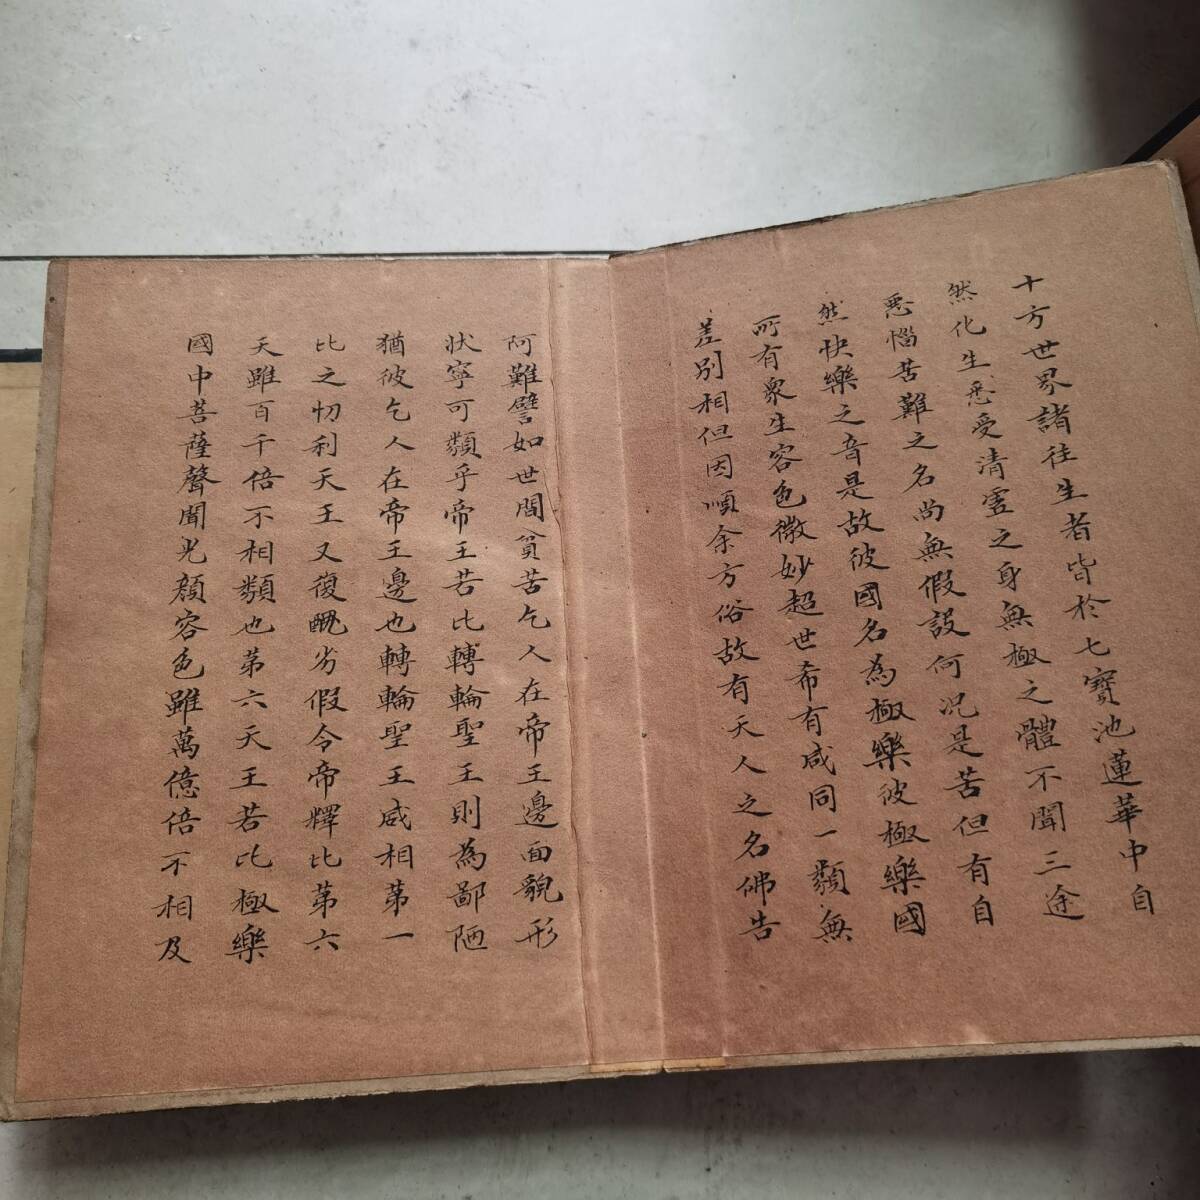 十方世界諸往生者皆於七寶池蓮華中自
然化生悉受清虛之身無極之體不聞三途
惡惱苦難之名尚無假設何況是苦但有自
然快樂之音是故彼國名為極樂彼極樂國
所有眾生容色微妙超世希有咸同一類無
差別相但因順余方俗故有天人之名佛告
阿難譬如世間貧苦乞人在帝王邊面貌形
狀寧可類乎帝王若比轉輪聖王則為鄙陋
猶彼乞人在帝王邊也轉輪聖王威相第一
比之忉利天王又復醜劣假令帝釋比第六
天雖百千倍不相類也第六天王若比極樂
國中菩薩聲聞光顏容色雖萬億倍不相及